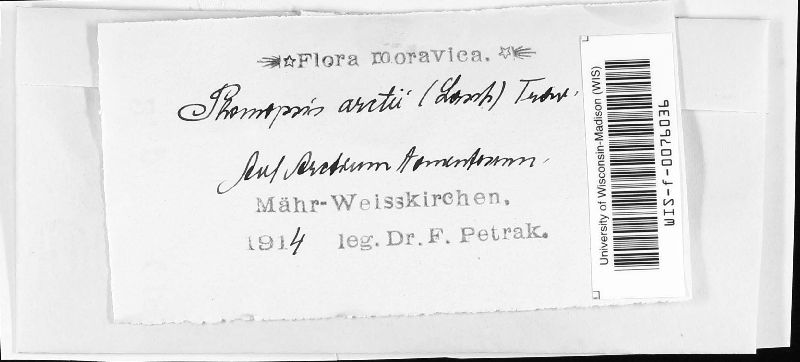 Flora moravica.
Phomopsis arctii (Lasch) Trav.
Auf Arctium tomentosum.
Mähr-Weisskirchen,
1914 leg. Dr. F. Petrak.
University of Wisconsin-Madison (WIS)
WIS-f-0076036